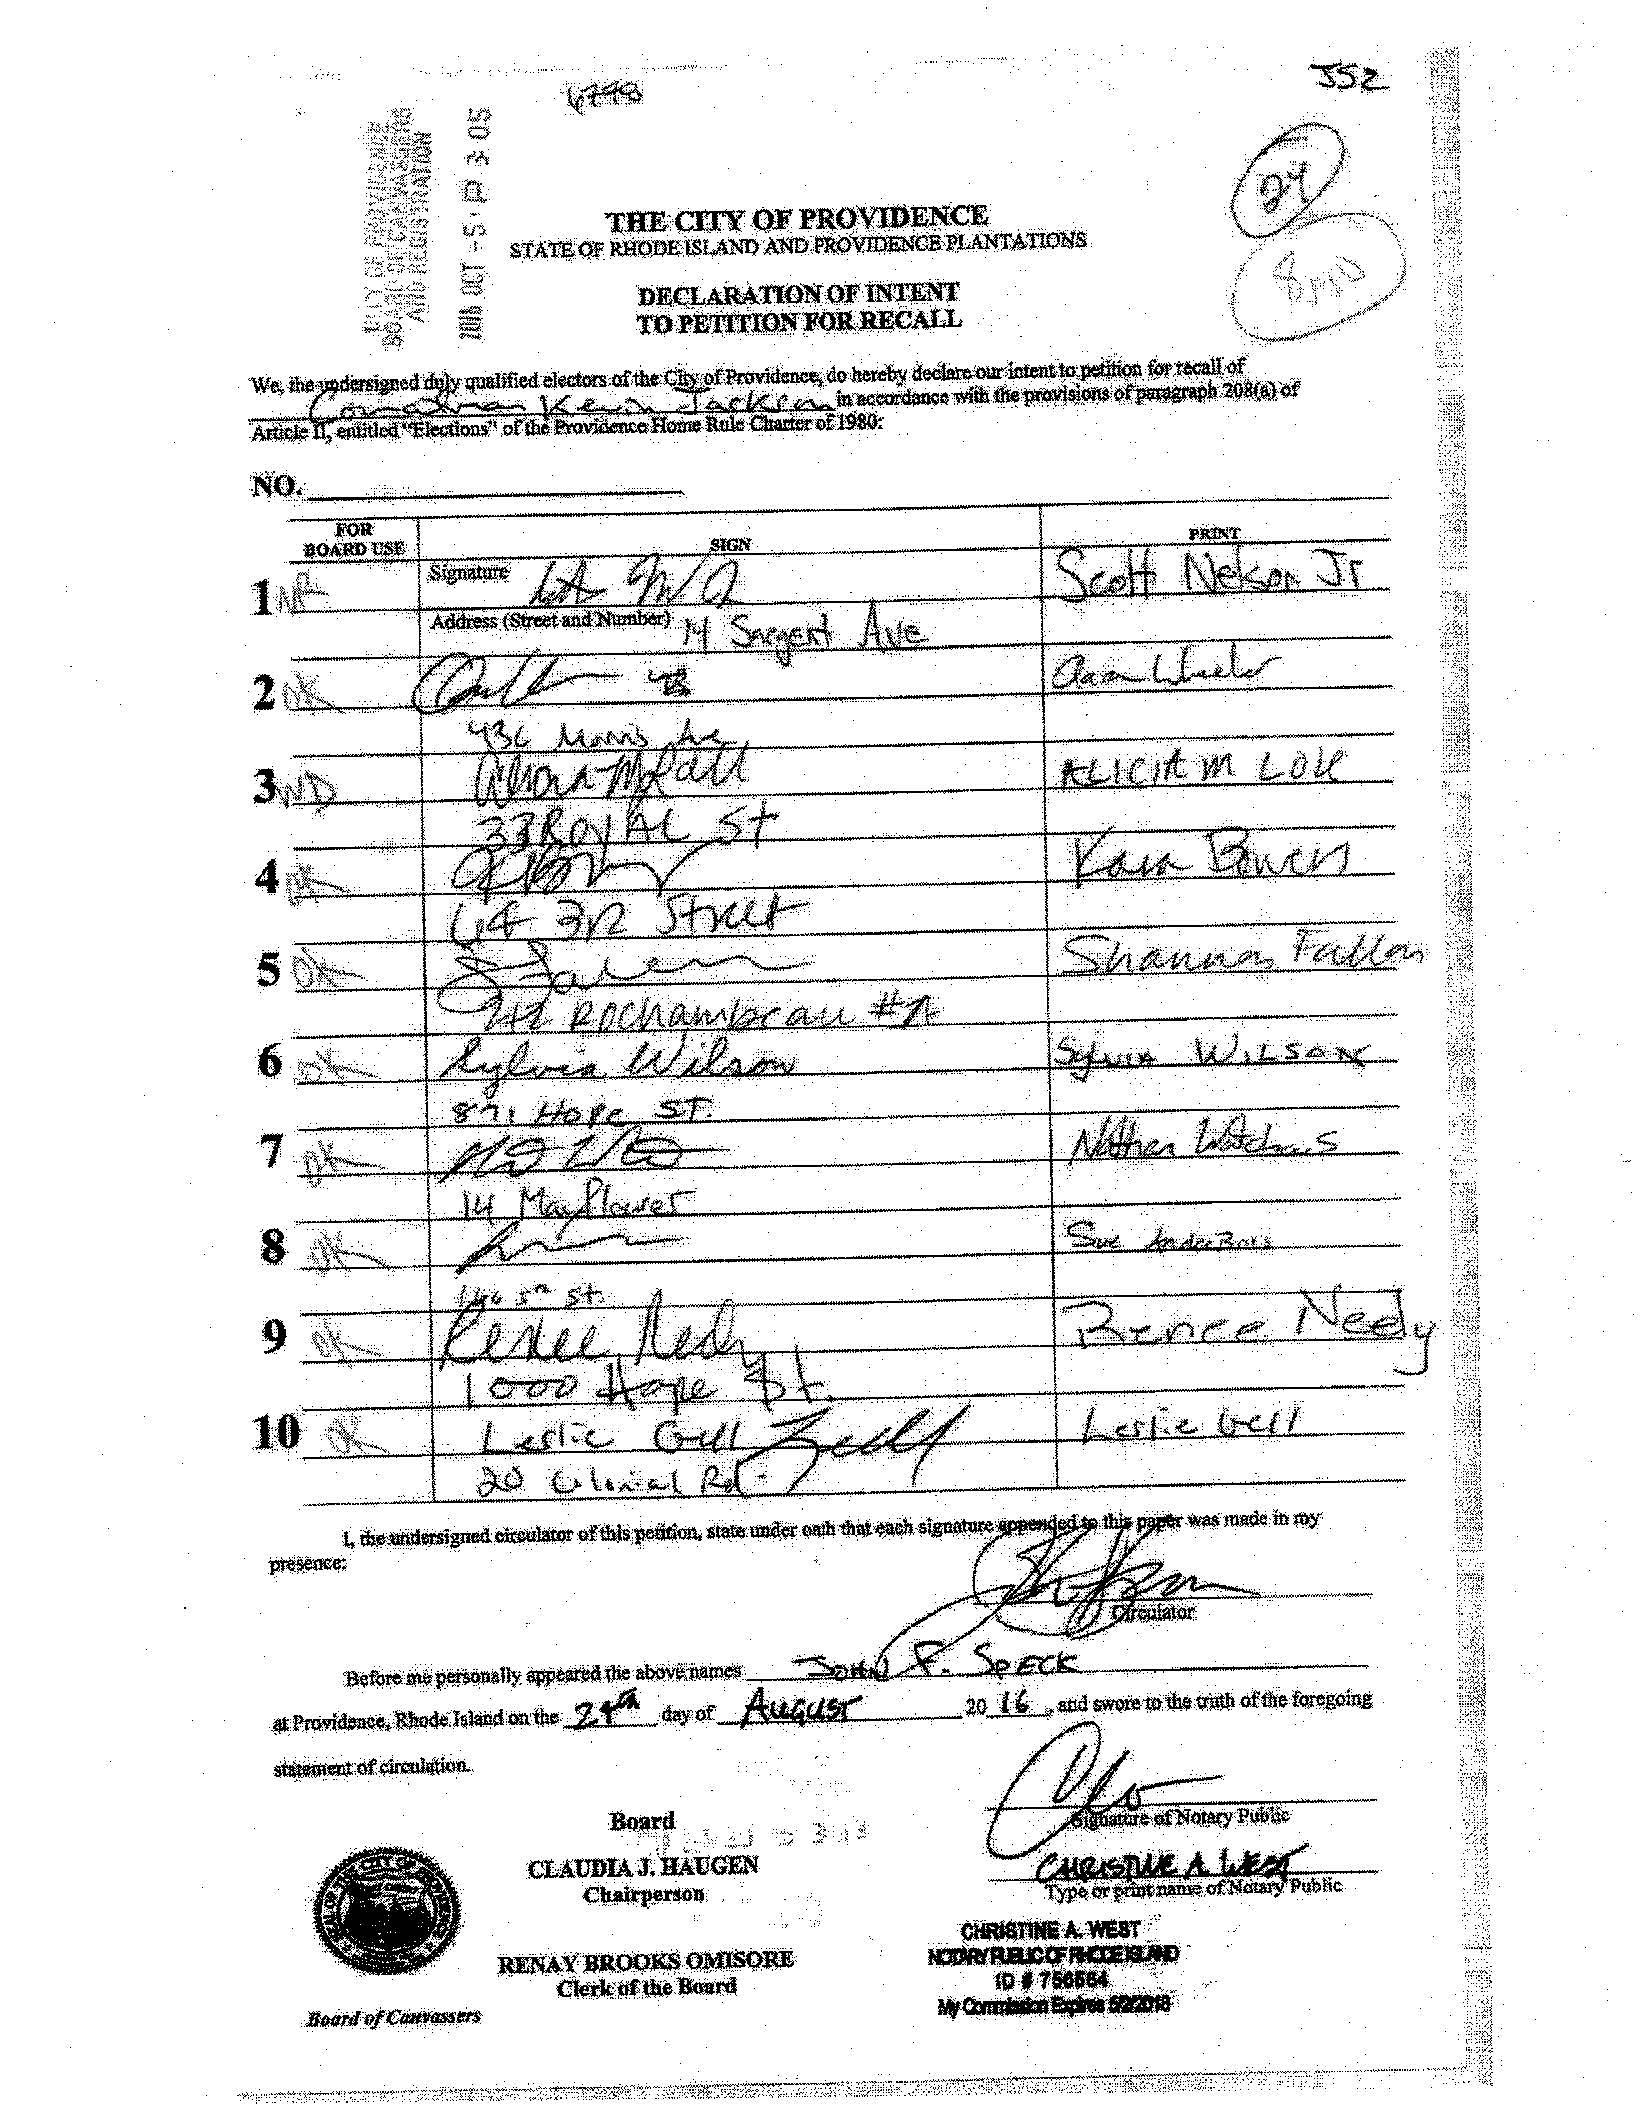 6798
JS2
CITY OF PROVIDENCE
BOARD OF CANVASSERS
AND REGISTRATION
2016 OCT -5 P 3:05
24
8
THE CITY OF PROVIDENCE
STATE OF RHODE ISLAND AND PROVIDENCE PLANTATIONS
DECLARATION OF INTENT
TO PETITION FOR RECALL
We, the undersigned duly qualified electors of the City of Providence, do hereby declare our intent to petition for recall of
Councilman Kevin Jackson in accordance with the provisions of paragraph 208(a) of
Article II, entitled "Elections" of the Providence Home Rule Charter of 1980:
NO.
FOR
BOARD USE
SIGN
PRINT
1 NR Signature Scott Nelson Jr
Address (Street and Number) 14 Sargent Ave
2 OK Wheeler
436 Morris Ave
3 WD ALICIA M LOVE
33 ROYAL St
4 OK Kara Bowers
64 3rd Street
5 OK Shannon Fallon
Rochambeau #A
6 OK Sylvia Wilson SYLVIA WILSON
871 HOPE ST.
7 OK Nathan
14 Mayflower
8 OK Sue AnderBois
146 5th St.
9 OK Renee Neely Renee Neely
1000 Hope St.
10 OK Leslie Gell Leslie Gell
20 Colonial Rd.
I, the undersigned circulator of this petition, state under oath that each signature appended to this paper was made in my
presence:
Circulator
Before me personally appeared the above names JOHN F. SPECK
at Providence, Rhode Island on the 24th day of AUGUST 20 16, and swore to the truth of the foregoing
statement of circulation.
Signature of Notary Public
CHRISTINE A. WEST
Type or print name of Notary Public
Board
CLAUDIA J. HAUGEN
Chairperson
RENAY BROOKS OMISORE
Clerk of the Board
CHRISTINE A. WEST
NOTARY PUBLIC OF RHODE ISLAND
ID # 756564
My Commission Expires 5/2/2018
Board of Canvassers